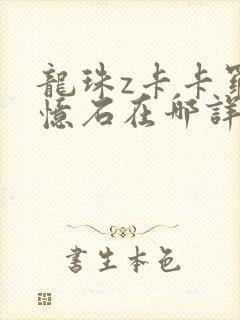 龍珠z卡卡羅
憶石在哪詳
書生本色